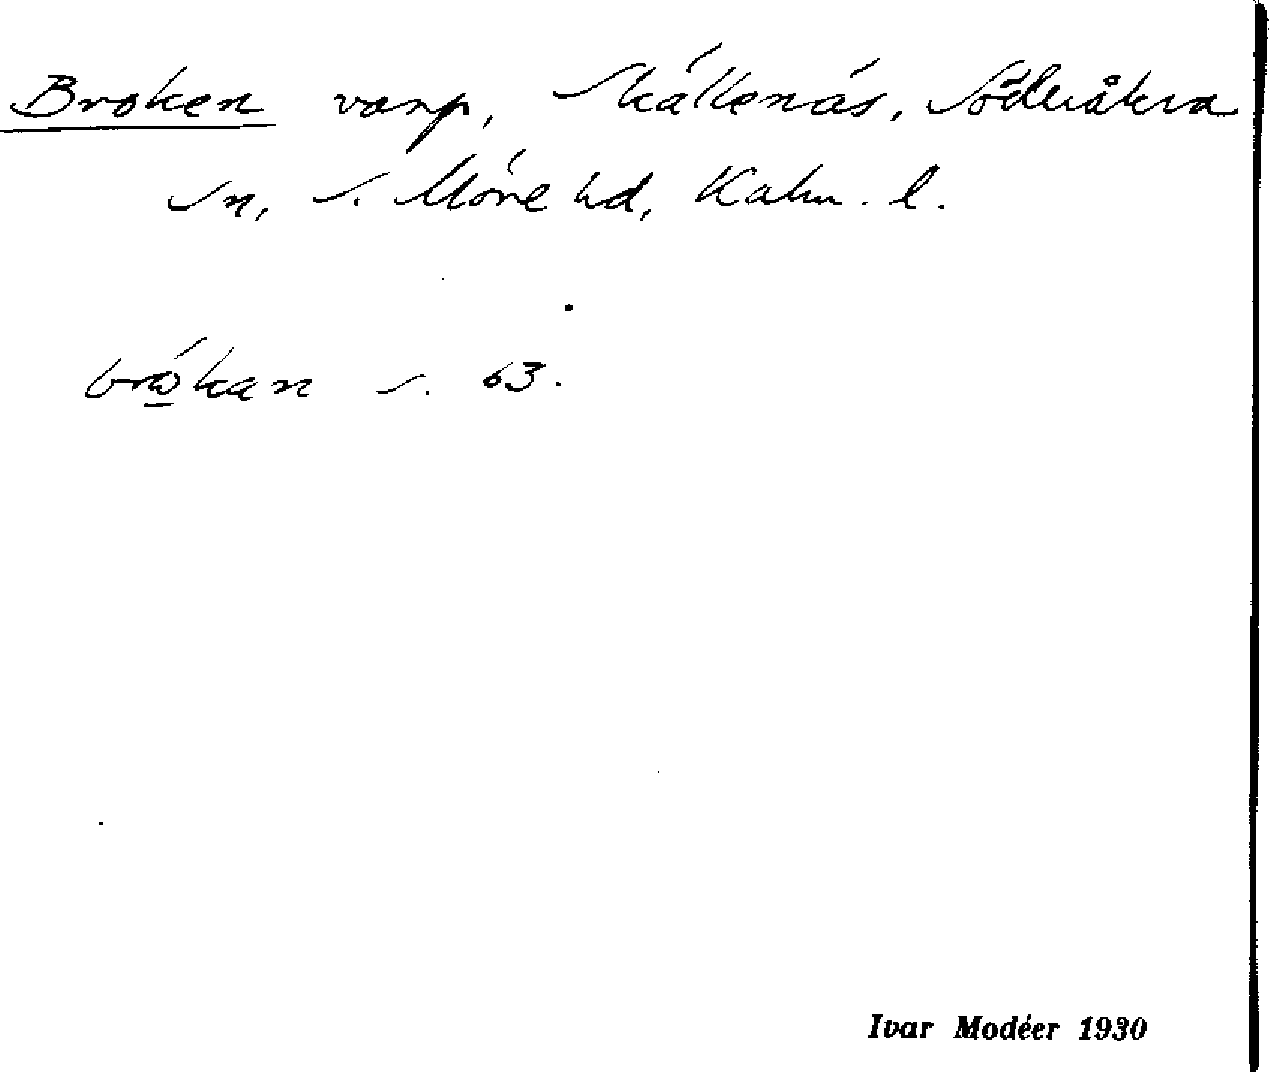 Broken varp, Skällenäs, Söderåkra
sn, S. Möre hd, Kalm. l.
s. 63.
Ivar Modéer 1930